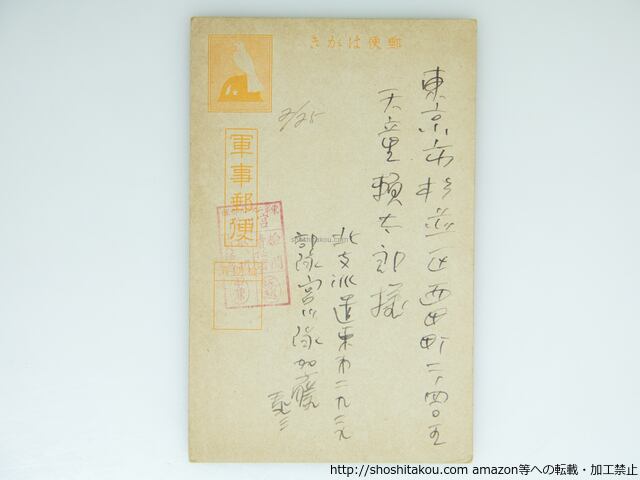 郵便はがき
東京市杉並区西田町二ノ四〇五
天童頼太郎様
北支派遣東市二九二九
部隊宮川隊加藤
2/25
軍事郵便
shoshitakou.com
http://shoshitakou.com amazon等への転載・加工禁止